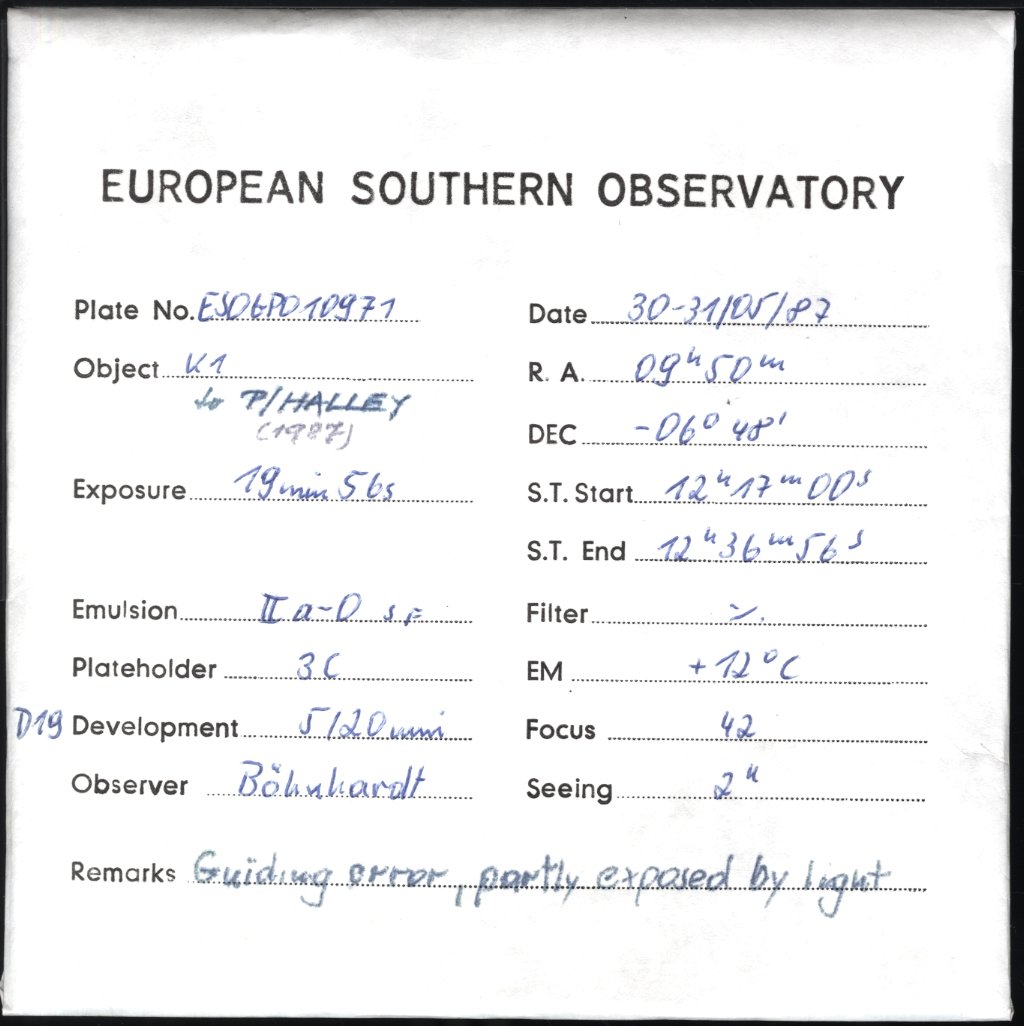 EUROPEAN SOUTHERN OBSERVATORY
Plate No. ESOGPO10971
Date 30-31/05/87
Object K1
R. A. 09h 50m
to P/HALLEY
(1987)
DEC -06° 48'
Exposure 19min 56s
S.T. Start 12h 17m 00s
S.T. End 12h 36m 56s
Emulsion IIa-O
Filter
Plateholder 3C
EM +12°C
D19 Development 5/20min
Focus 42
Observer Böhnhardt
Seeing 2"
Remarks Guiding error, partly exposed by light